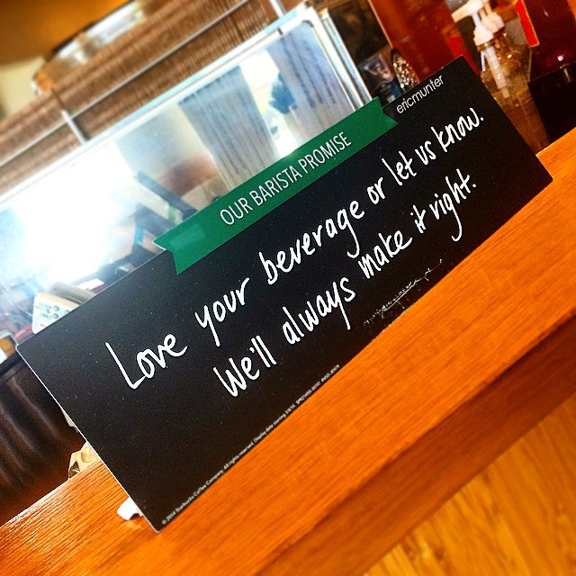 ericmunter
OUR BARISTA PROMISE
Love your beverage or let us know.
We'll always make it right.
© 2014 Starbucks Coffee Company. All rights reserved.